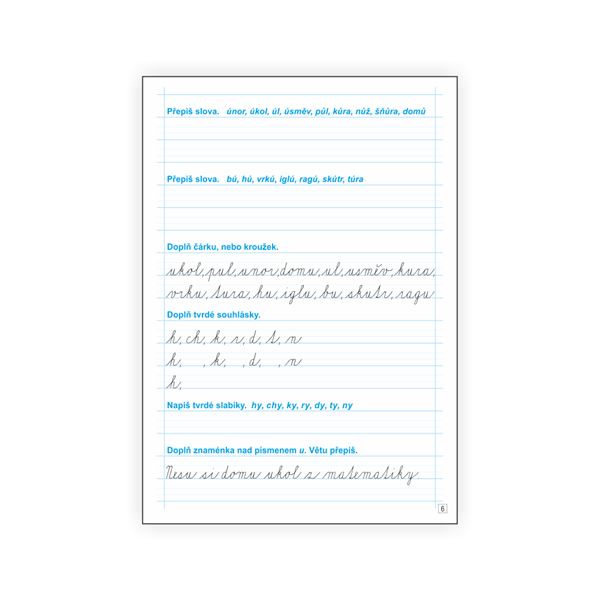 Přepiš slova. únor, úkol, úl, úsměv, půl, kůra, nůž, šňůra, domů
Přepiš slova. bú, hú, vrkú, iglú, ragú, skútr, túra
Doplň čárku, nebo kroužek.
ukol, pul, unor, domu, ul, usměv, kura,
vrku, tura, hu, iglu, bu, skutr, ragu
Doplň tvrdé souhlásky.
h, ch, k, r, d, t, n
h, , k, , d, , n
h,
Napiš tvrdé slabiky. hy, chy, ky, ry, dy, ty, ny
Doplň znaménka nad písmenem u. Větu přepiš.
Nesu si domu ukol z matematiky
6